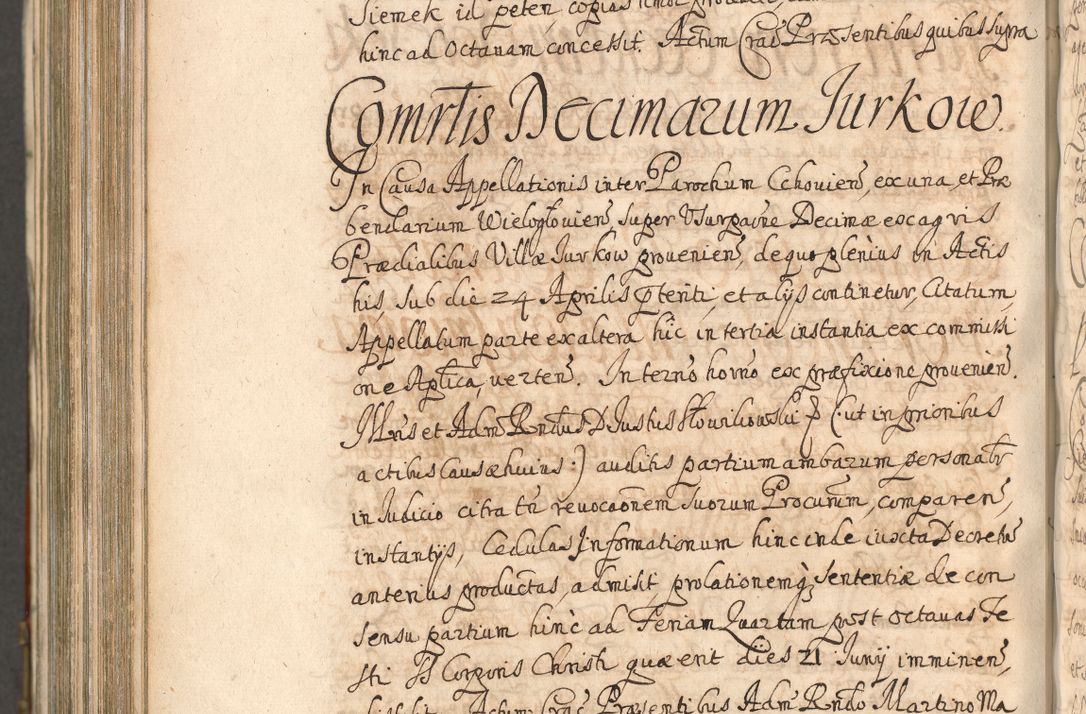 Siemek id peten, copias
hinc ad Octavam concessit. Actum Crac Præsentibus quibus supra
Comrtis Decimarum Jurkow.
In Causa Appellationis inter Parochum Cchovien, ex una, et Præ
bendarium Wielogłovien, super Usurpaone Decimæ ex agris
Prædialibus Villæ Jurkow provenien, de quo plenius in Actis
his, sub die 24 Aprilis ptenti, et alijs continetur, Citatum,
Appellatum parte ex altera hic in tertia instantia ex commissi
one Aplica, verten. In terno horno ex præfixione provenien.
Illris et Adm Rndus D Justus Słowikowski J (: ut in prioribus
actibus Causæ huius :) auditis partium ambarum personalr
in Judicio citra tn revocaonem suorum Procurum, comparen,
instantijs, Cedulas Informationum hinc inde iuxta Decretu
anterius productas, admisit prolationemq sententiæ de con
sensu partium hinc ad Feriam Quartam post octavas Fe
sti SS Corporis Christi quæ erit dies 21 Junij imminen,
Actum Crac Præsentibus Adm Rndo Martino Ma